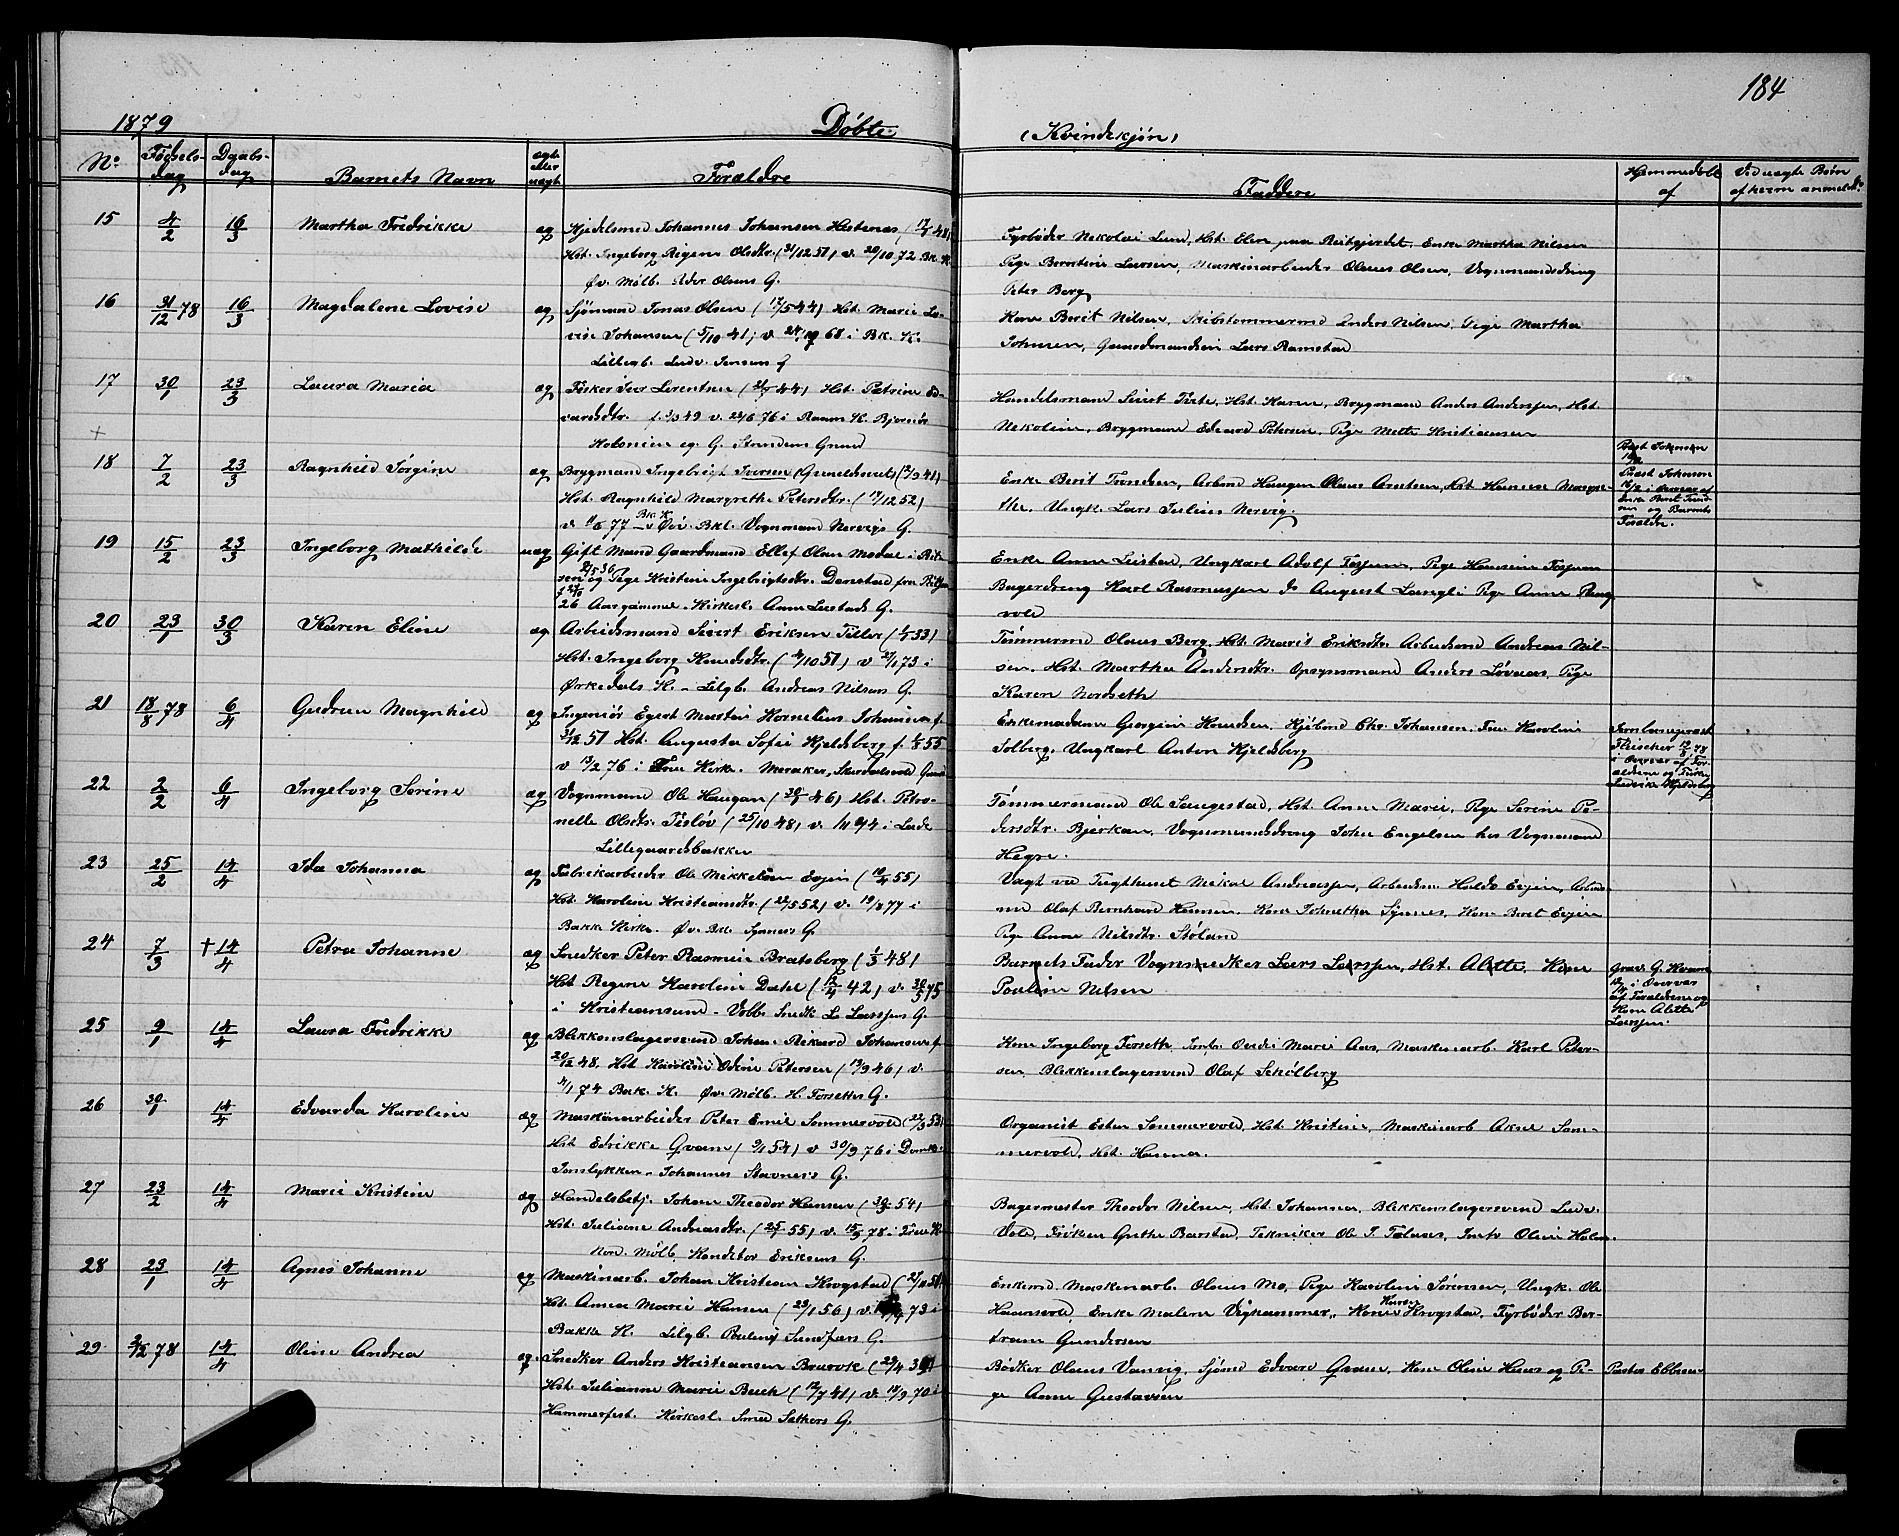 184
1879 Døbte (Kvindekjøn)
No Fødsels-dag Daabs-dag Barnets Navn ægte eller uægt Forældre Faddere Hjemmedøbt af Ved uægte Børn af hvem anmeldt
15 4/2 16/3 Martha Fredrikke æg Kjedelsmed Johannes Johansen Hestenes
Hst. Ingeborg Regine Olsdtr. (31/12 51) v. 20/10 72 Bk. K.
Øv. Mølb. Peder Olsens G.
Fyrbøder Nikolai Lund, Hst. Elen paa Reitgjerdet. Enke Martha Nilsen
Pige Berntine Larsen, Maskinarbeider Olaus Olsen, Vognmandsdreng
Peter Berg
16 31/12 78 16/3 Magdalene Lovise æg Sjømand Jonas Olsen (17/5 44) Hst. Marie Lo-
vise Johansen (5/10 41) v. 68 i Bk. K.
Lillegb. Ludv. Jensens G
Kone Berit Nilsen, Skibstømmermd Anders Nilsen, Pige Martha
Johnsen, Gaardmandsen Lars Ramstad
17 30/1 23/3 Laura Maria æg Fisker Iver Lorentsen Hst. Petrine Ed-
vardsdtr. 49 v. 76 i Raum K. Bjørnørs
Kolonien eg. G. Strindens Grund
Handelsmand Sivert Tvete, Hst. Karen, Brygmand Anders Anderssen, Hst.
Nekoline, Brygmand Edvard Petersen, Pige Mette Kristiansen
18 7/2 23/3 Ragnhild Jørgine æg Brygmand Ingebrigt Iversen (Guneldsmet) (12/9 41)
Hst. Ragnhild Margrethe Petersdtr. (17/12 52)
v. 77 Bk. K. Øv. Bkl. Vognmand Nervigs G.
Enke Berit Trondsen, Arbmd Haagen Olaus Arntsen, Hst Hansine Margre-
the, Ungk. Lars Julius Nervig.
Præst Johnson
i Overvær af
Enke Berit Trond-
sen og Barnets
Forældre.
19 15/2 23/3 Ingeborg Mathilde uæg Gift Mand Gaardmand Ellef Olsen Modal i Ris-
sen og Pige Kristine Ingebrigtsdtr. Danstad fra Ritsen
26 Aar gammel. Kirkesl. Anne Leistads G.
Enke Anne Leistad, Ungkarl Adolf Fosjum, Pige Hansine Fosjum
Bagerdreng Karl Rasmussen do August Langli Pige Anne Raag
vold
20 23/1 30/3 Karen Eline æg Arbeidsmand Sivert Eriksen Tiller
Hst. Ingeborg Knudsdtr. (4/10 51) v. 27/1 73 i
Ørkedals K. – Lilgb. Andreas Nilsens G.
Tømmermd Olaus Berg, Hst. Marit Eriksdtr. Arbeidsmd Andreas Nil-
sen, Hst. Martha Andersdtr. Opsynsmand Anders Løvaas, Pige
Karen Nordseth
21 18/8 78 6/4 Gudrun Magnhild æg Ingeniør Egert Martin Kornelius Johansen f.
31/12 51 Hst. Augusta Sofie Kjeldsberg f. 55
v 13/2 76 i Frue Kirke. Meraker, Skurdalsvold
Enkemadame Georgine Knudsen, Kjøbmd Chr. Johansen. Frue Karoline
Solberg, Ungkarl Anton Kjeldsberg
Fleischer 78
i Overvær af For-
ældrene og Frøken
Ludvikke Kjeldsberg
22 2/2 6/4 Ingeborg Serine æg Vognmand Ole Haugan Hst. Petro-
nelle Olsdtr. Tisløv (25/10 48) v. i Lade
Lillegaardsbakken
Tømmermand Ole Saugestad, Hst. Anne Marie, Pige Serine Pe-
dersdtr. Bjerkan, Vognmandsdreng John Engelsen hos Vognmand
Hegre.
23 25/2 14/4 Ida Johanna æg Fabrikarbeider Ole Mikkelsen Evjen
Hst. Karoline Kristiansdtr. (22/5 52) v. 77 i
Bakk Kirke. Øv. Bk. Synnes G.
Vagt ved Tugthuset Mikal Andreassen, Arbeidsm. Haldo Evjen, Arbeids-
md Olaf Bernhard Hansen. Kone Johnetha Synnes, Kone Beret Evjen
Pige Anne Nilsdtr. Stølan
24 7/3 †14/4 Petra Johanne æg Snedker Peter Rasmus Bratsberg (1/3 48)
Hst. Regine Karoline Dahl (12/4 42) v. 75
i Kristiansund – Vobb. Snedk. L. Larssens G.
Barnets Fader Vognsnedker Lars Larssen, Hst. Alette, Kone
Pouline Nilsen
Grav. G. Kvam
i Overvær
af Forældrene og
Kone Alette
Larssen.
25 9/1 14/4 Laura Fredrikke æg Blikkenslagersvend Johan Rikard Johansen f.
20/2 48, Hst. Karoline Odine Petersen (13/9 46) v.
4/1 74 Bak. K. Øv. Mølb. H. Forseths G.
Kone Ingeborg Forseth, Jomfr. Ovedie Marie Aas, Maskinarb. Karl Peter-
sen, Blikkenslagersvend Olaf Schölberg
26 30/1 14/4 Edvarda Karoline æg Maskinarbeider Peter Emil Sommervold
Hst Edrikke Qvam (9/1 54) v. 30/9 76 i Domk.
Jonsløkken – Johannes Stavnes's G.
Organist Esten Sommervold, Hst. Kristine, Maskinarb Akne Som-
mervold, Hst. Hanna.
27 23/2 14/4 Marie Kristine æg Handelsbetj. Johan Theodor Hansen
Hst. Juliane Andreasdtr. v. 78 i Frue K
Nor. Mølb. Konditor Eriksens G.
Bagermester Theodor Nilsen, Hst Johanna, Blikkenslagersvend Ludv.
Vold, Frøken Grethe Barstad, Tekniker Ole J. Følnes, Jomfr Oline Holm.
28 23/1 14/4 Agnes Johanne æg Maskinarb. Johan Kristian Krogstad
Hst. Anna Marie Hansen (23/1 56) v. 73 i
Bakke K. Lilgb. Poulens Sundfærs G.
Enkemd. Maskinarb. Olaus Mo, Pige Karoline Sørensen, Ungk. Ole
Haarsvold, Enke Malene Vigkammer, Kone Karen Krogstad, Fyrbøder Ber-
tram Gundersen
29 78 14/4 Oline Andrea æg. Snedker Anders Kristiansen Bruvok
Hst. Julianne Marie Buck (12/7 41) v. 13/9 70 i
Hammerfest. Kirkesl. Smed Sæthers G.
Bødker Olaus Vanvig, Sjømd Edvard Qvam, Kone Oline Huus og Pi-
ge Anne Gustavsen
Pastor Ebbesen